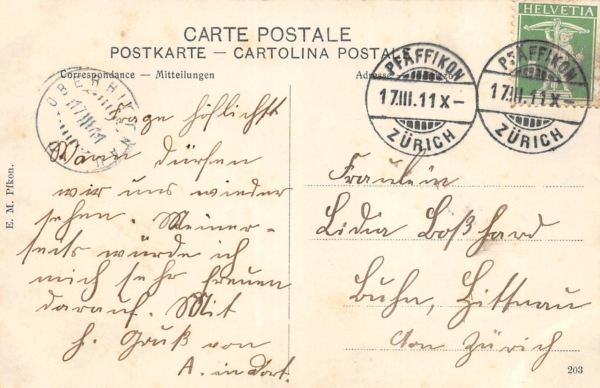 CARTE POSTALE
POSTKARTE — CARTOLINA POSTALE
Correspondance — Mitteilungen
Adresse
HELVETIA
PFÄFFIKON
17.III.11 X–
ZÜRICH
PFÄFFIKON
17.III.11 X–
ZÜRICH
17.III.11
Frage höflichst
Wann dürfen
wir uns wieder
sehen. Meiner-
seits würde ich
mich sehr freuen
darauf. Mit
h. Gruß von
A. in dort.
Fräulein
Lidia Boßhard
Buhn, Hittnau
Ctn Zürich
E. M. Pfkon.
203